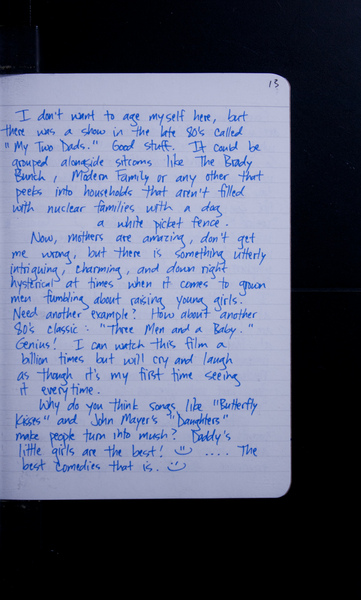 13
I don't want to age myself here, but
there was a show in the late 80's called
"My Two Dads." Good stuff. It could be
grouped alongside sitcoms like The Brady
Bunch, Modern Family or any other that
peeks into households that aren't filled
with nuclear families with a dog
a white picket fence.
Now, mothers are amazing, don't get
me wrong, but there is something utterly
intriguing, charming, and down right
hysterical at times when it comes to grown
men fumbling about raising young girls.
Need another example? How about another
80's classic: "Three Men and a Baby."
Genius! I can watch this film a
billion times but will cry and laugh
as though it's my first time seeing
it everytime.
Why do you think songs like "Butterfly
Kisses" and John Mayer's "Daughters"
make people turn into mush? Daddy's
little girls are the best! .... The
best comedies that is.